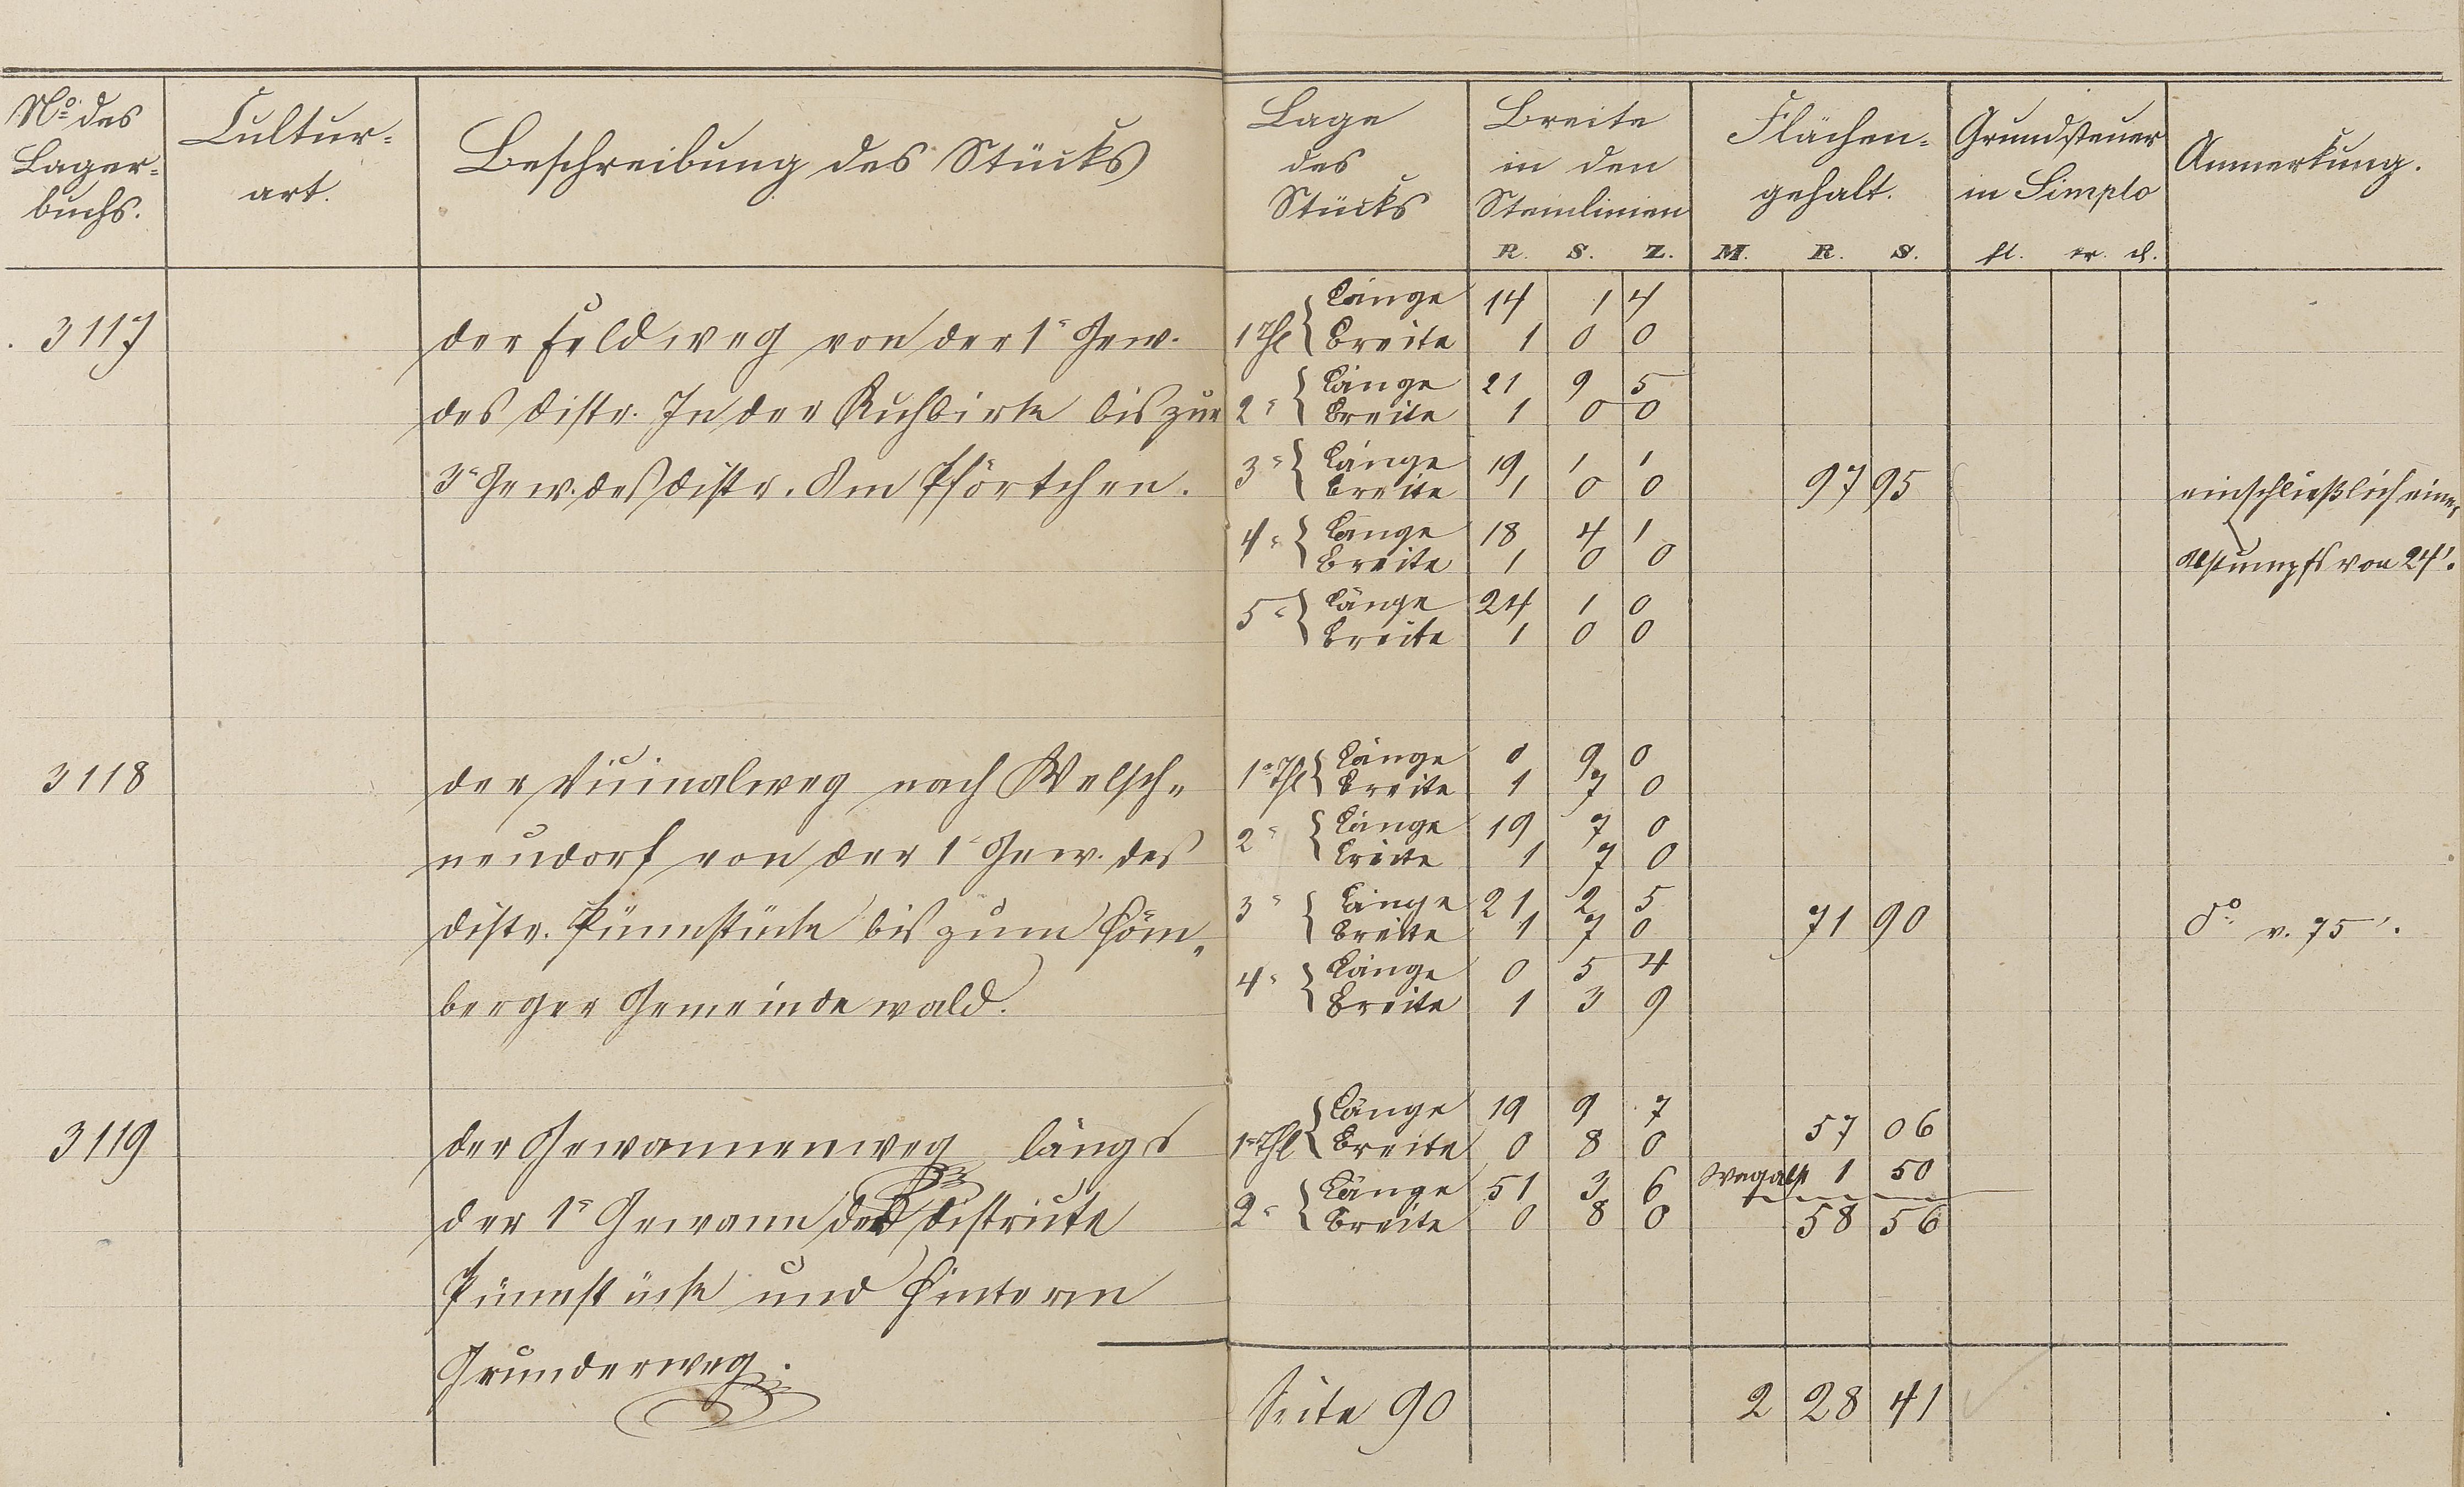 No. des Lager-buchs.
Cultur-art.
Beschreibung des Stücks
Lage des Stücks
Breite in den Steinlinien
R. S. Z.
Flächen-gehalt.
M. R. S.
Grundsteuer in Simplo
fl. xr. d.
Anmerkung.
3117
der Feldweg von der 1r Gew.
des Distr. In der Kuhbirke bis zur
3r Gew. des Distr. Am Pförtchen.
1 Thl Länge 14 1 4
Breite 1 0 0
2r Länge 21 9 5
Breite 1 0 0
3r Länge 19 1 1
Breite 1 0 0
97 95
einschließlich eines
4r Länge 18 4 1
Breite 1 0 0
Abstumpfs von 24'.
5r Länge 24 1 0
Breite 1 0 0
3118
der Vicinalweg nach Welsch-
neudorf von der 1r Gew. des
Distr. Pünnstücke bis zum Höm-
berger Gemeindewald.
1r Thl Länge 0 9 0
Breite 1 7 0
2r Länge 19 7 0
Breite 1 7 0
3r Länge 21 2 5
Breite 1 7 0
71 90
do. v. 75'.
4r Länge 0 5 4
Breite 1 3 9
3119
der Gewannenweg längs
der 1r Gewann der Districte
Pünnstücke und Hinterm
Grunderweg.
1r Thl Länge 19 9 7
Breite 0 8 0
57 06
2r Länge 51 3 6
Breite 0 8 0
Wegabst 1 50
58 56
Seite 90
2 28 41